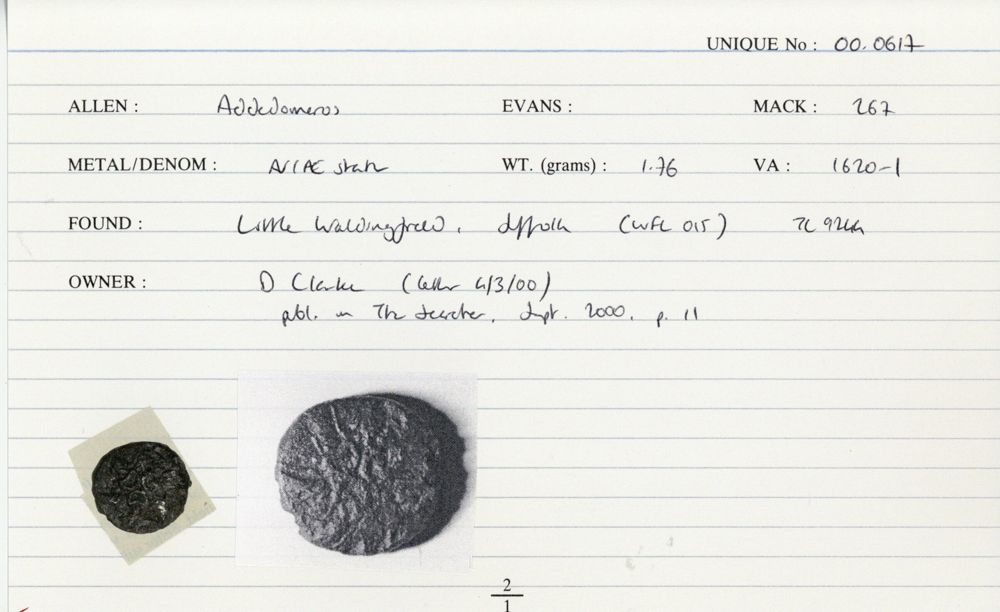 UNIQUE No : 00.0617
ALLEN : Addedomeros EVANS : MACK : 267
METAL/DENOM : AV/AE stater WT. (grams) : 1.76 VA : 1620-1
FOUND : Little Waldingfield, Suffolk (WFL 015) TL 9244
OWNER : D Clarke (letter 4/3/00)
publ. in The Searcher, Sept. 2000, p. 11
2
1